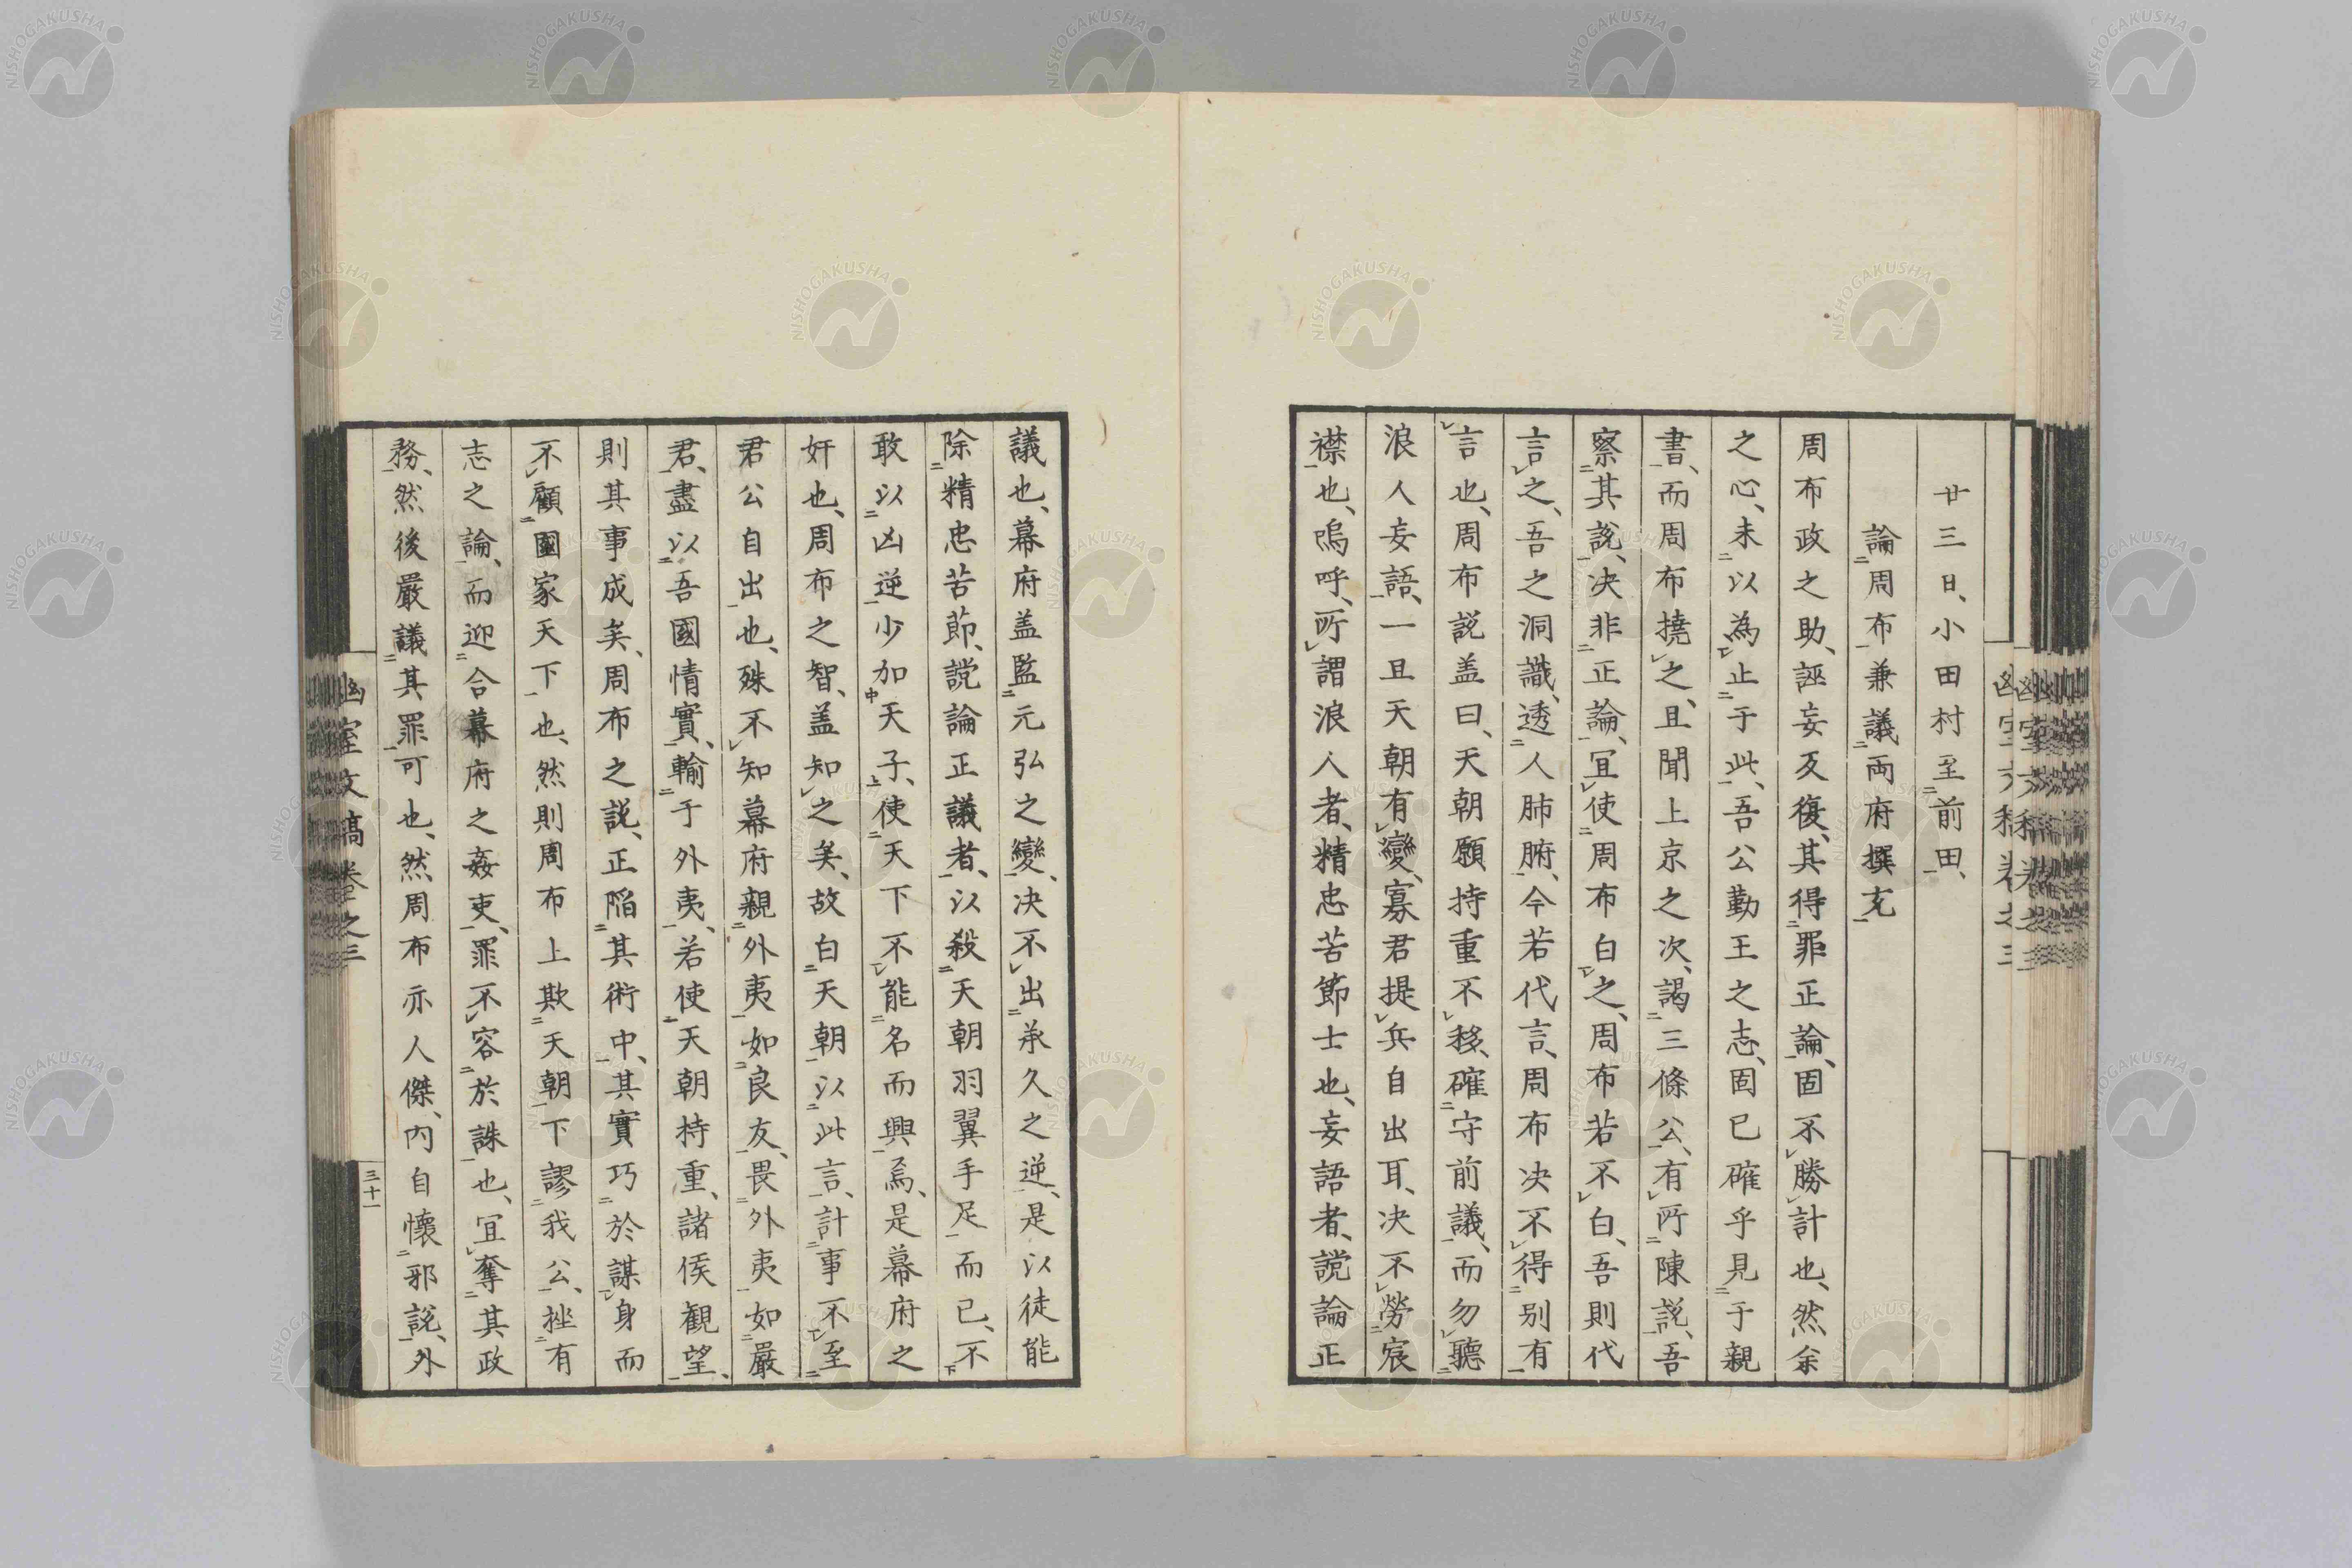 廿三日、小田村至前田、
論周布兼議両府撰充
周布政之助、誣妄反復、其得罪正論、固不勝計也、然余
之心、未以為止于此、吾公勤王之志、固已確乎見于親
書、而周布撓之、且聞上京之次、謁三條公、有所陳説、吾
察其説、决非正論、宜使周布白之、周布若不白、吾則代
言之、吾之洞識、透人肺腑、今若代言、周布决不得別有
言也、周布説盖曰、天朝願持重不移、確守前議、而勿聽
浪人妄語、一旦天朝有變、寡君提兵自出耳、决不勞宸
襟也、嗚呼、所謂浪人者、精忠苦節士也、妄語者、讜論正
議也、幕府盖監元弘之變、决不出承久之逆、是以徒能
除精忠苦節、讜論正議者、以殺天朝羽翼手足而已、不
敢以凶逆少加天子、使天下不能名而興焉、是幕府之
奸也、周布之智、盖知之矣、故白天朝以此言、計事不至
君公自出也、殊不知幕府親外夷如良友、畏外夷如嚴
君、盡以吾國情實、輸于外夷、若使天朝持重、諸侯観望、
則其事成矣、周布之説、正陥其術中、其實巧於謀身而
不顧國家天下也、然則周布上欺天朝下謬我公、挫有
志之論、而迎合幕府之姦吏、罪不容於誅也、宜奪其政
務、然後嚴議其罪可也、然周布亦人傑、内自懷邪説、外
幽室文稿巻之三
三十一